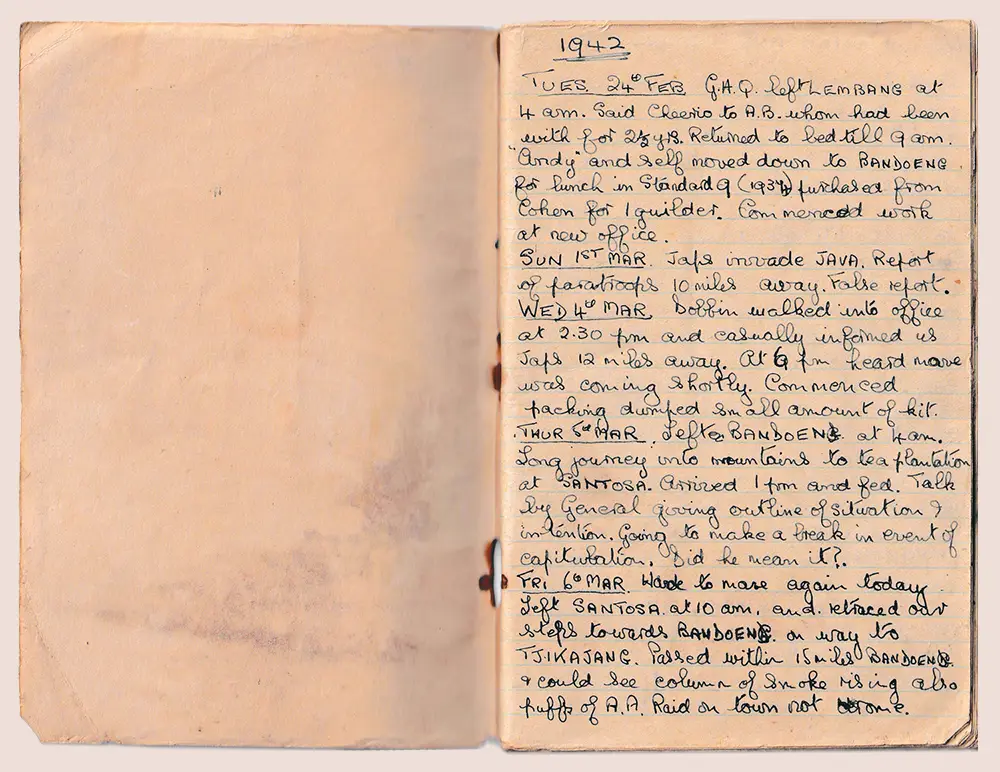 1942
TUES. 24th FEB G.H.Q. left LEMBANG at
4 am. Said Cheerio to A.B. whom had been
with for 2½ yrs. Returned to bed till 9 am.
"Andy" and self moved down to BANDOENG
for lunch in Standard 9 (1934) purchased from
Cohen for 1 guilder. Commenced work
at new office.
SUN 1ST MAR. Japs invade JAVA. Report
of paratroops 10 miles away. False report.
WED 4th MAR. Dobbin walked into office
at 2.30 pm and casually informed us
Japs 12 miles away. At 6 pm heard move
was coming shortly. Commenced
packing dumped small amount of kit.
THUR 5th MAR. Left BANDOENG at 4 am.
Long journey into mountains to tea plantation
at SANTOSA. Arrived 1 pm and fed. Talk
by General giving outline of situation &
intention. Going to make a break in event of
capitulation. Did he mean it?.
FRI 6th MAR. to move again today
Left SANTOSA. at 10 am. and. retraced our
steps towards BANDOENG. on way to
TJIKAJANG. Passed within 15 miles BANDOENG.
& could see column of smoke rising also
puffs of A.A. Raid on town not